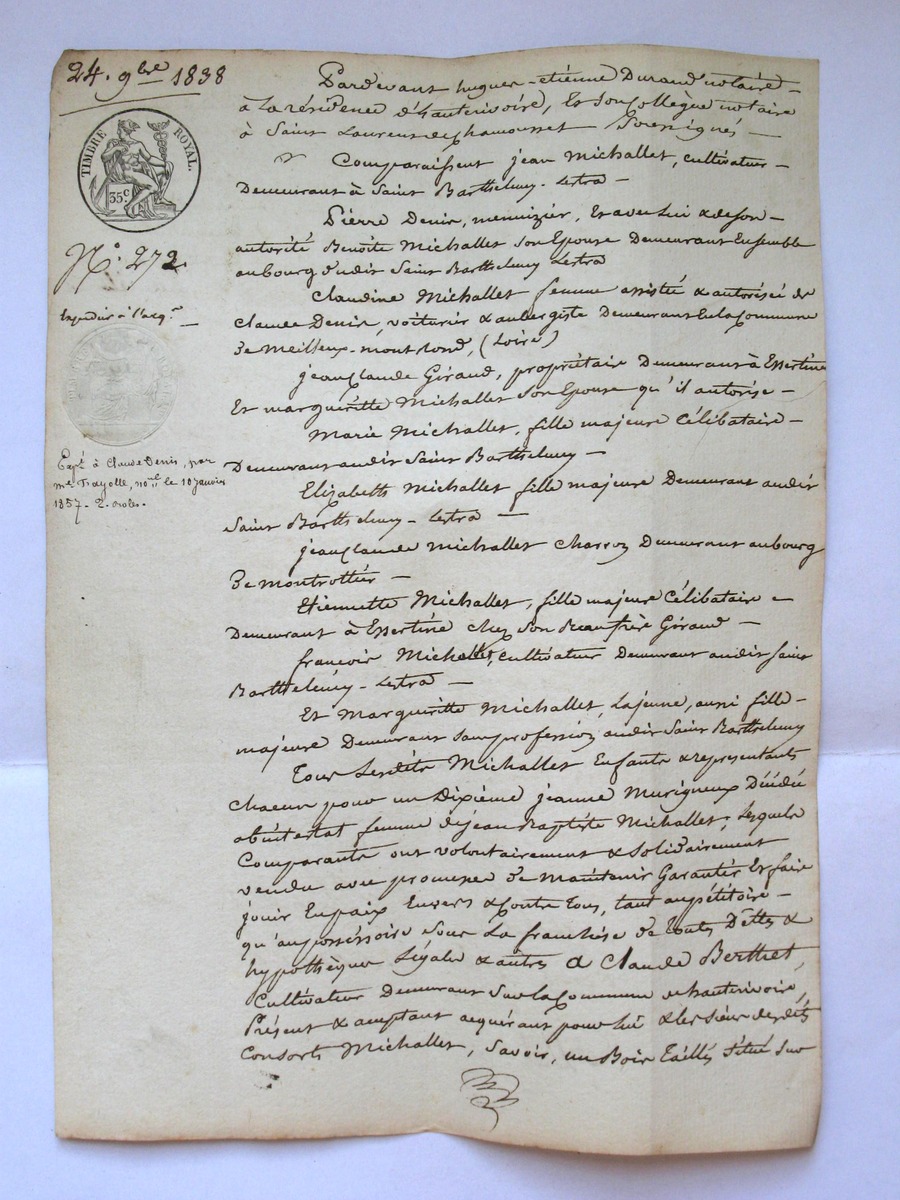 24. 9bre 1838
TIMBRE ROYAL.
35c
N.o 272
Expédié à l'acq.r
Expé à Claude Denis, par
me Fayolle, no.re le 10 janvier
1857. 2. roles.
Pardevant hugues-etiénne Durand notaire
à La résidence d'hauterivoire, Et Son Collègue notaire
à Saint Laurent de Chamousset Soussignés
Comparaissent jean Michallet, cultivateur
Demeurant à Saint Barthelemy-Lestra
Pierre Denis, menuizier, Et avec lui & de son
autorité Benoîte Michallet Son Epouse Demeurant Ensemble
au bourg dudit Saint Barthelemy Lestra
Claudine Michallet femme assistée & autorisée de
Claude Denis, voiturier & aubergiste Demeurant En la Commune
De Meilleux-montrond, (Loire)
jean Claude Giraud, propriétaire Demeurant à Essertine
Et margueritte Michallet Son Epouse qu'il autorise
Marie Michallet, fille majeure Célibataire
Demeurant audit Saint Barthelemy
Elizabeth Michallet fille majeure Demeurant audit
Saint Barthelemy-Lestra
jean Claude Michallet Charron Demeurant au bourg
De montrottier
Etiennette Michallet, fille majeure Célibataire
Demeurant à Essertine chez Son Beaufrère Giraud
françois Michallet, Cultivateur Demeurant audit Saint
Barthelemy-Lestra
Et Margueritte Michallet, Lajeune, aussi fille
majeure Demeurant sans profession audit Saint Barthelemy
Tous Lesdits Michallet Enfants & représentants
Chacun pour un Dixiéme jeanne Murigneux Décédée
abintestat femme de jean Baptiste Michallet; Lesquels
Comparants ont volontairement & Solidairement
vendu avec promesse De maintenir Garantir Et faire
jouir En paix Envers & Contre Tous, tant au pétitoire
qu'au possessoire Sous La franchise de toutes Dettes &
hypothèques Légales & autres à Claude Berthet,
Cultivateur Demeurant Sur la Commune d'hauterivoire,
Présent & acceptant acquérant pour lui & les Siens desdits
Consorts Michallet, Savoir, un Bois Taillis Situé Sur